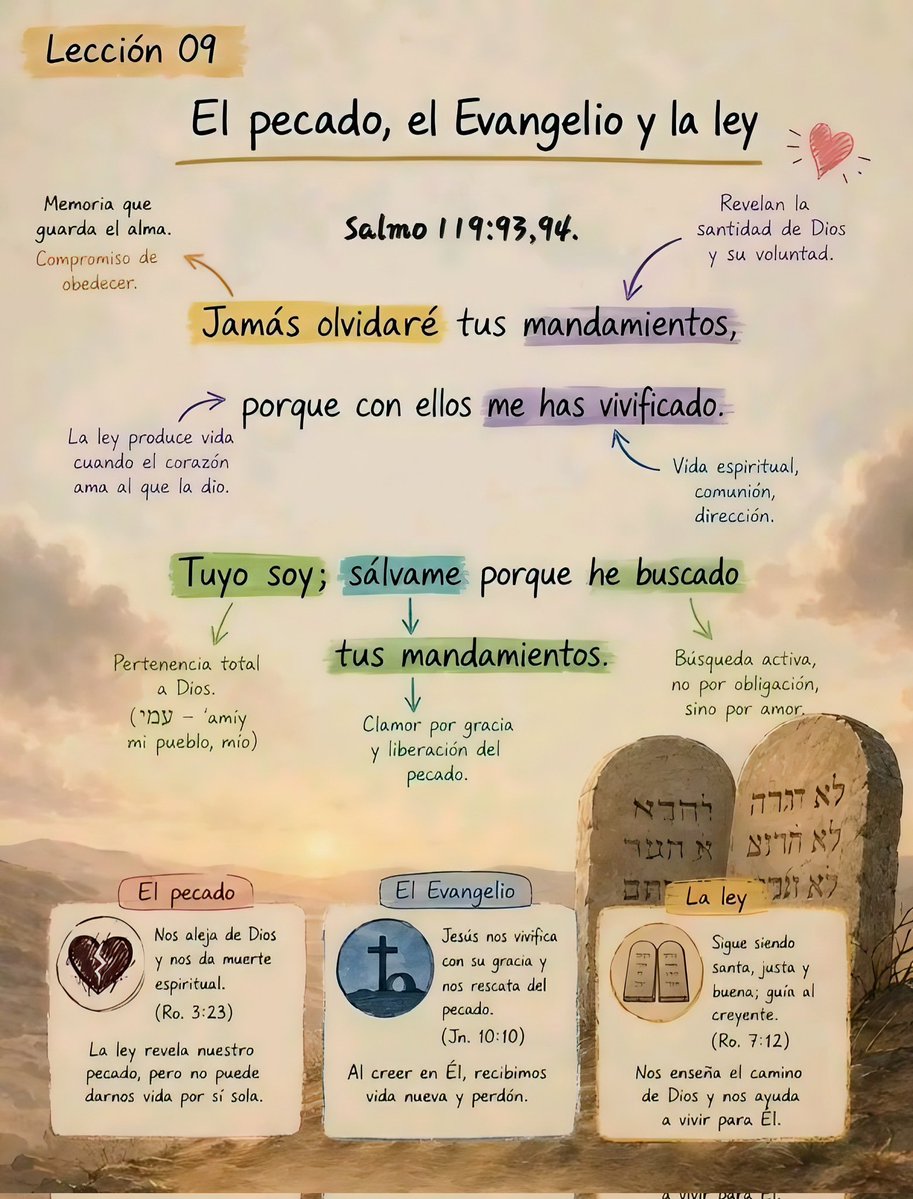 Lección 09
El pecado, el Evangelio y la ley
Memoria que
guarda el alma.
Compromiso de
obedecer.
Salmo 119:93,94.
Revelan la
santidad de Dios
y su voluntad.
Jamás olvidaré tus mandamientos,
porque con ellos me has vivificado.
La ley produce vida
cuando el corazón
ama al que la dio.
Vida espiritual,
comunión,
dirección.
Tuyo soy; sálvame porque he buscado
tus mandamientos.
Pertenencia total
a Dios.
(עמי – 'amíy
mi pueblo, mío)
Clamor por gracia
y liberación del
pecado.
Búsqueda activa,
no por obligación,
sino por amor.
El pecado
Nos aleja de Dios
y nos da muerte
espiritual.
(Ro. 3:23)
La ley revela nuestro
pecado, pero no puede
darnos vida por sí sola.
El Evangelio
Jesús nos vivifica
con su gracia y
nos rescata del
pecado.
(Jn. 10:10)
Al creer en Él, recibimos
vida nueva y perdón.
La ley
Sigue siendo
santa, justa y
buena; guía al
creyente.
(Ro. 7:12)
Nos enseña el camino
de Dios y nos ayuda
a vivir para Él.